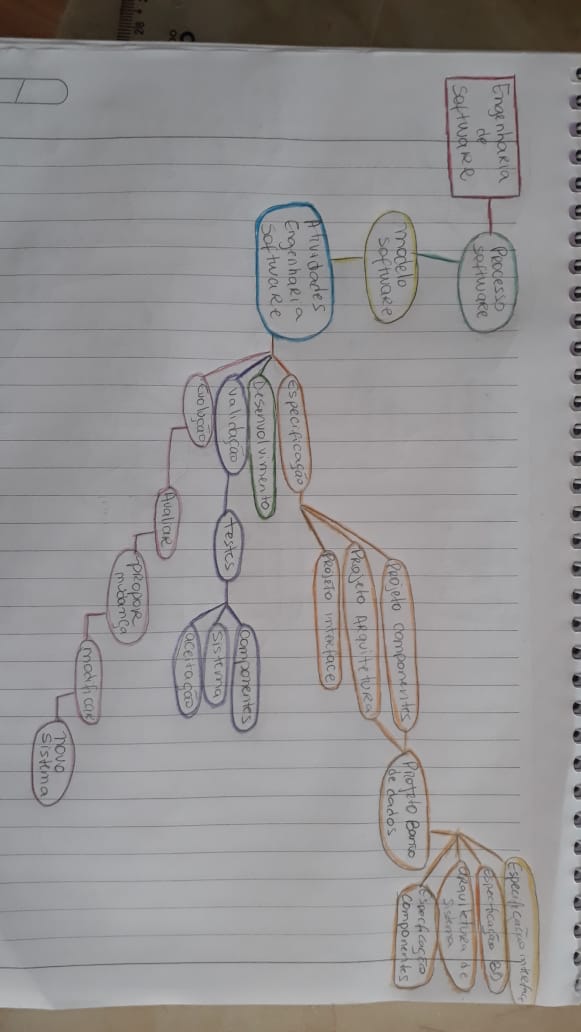 Engenharia
de
Software
Processo
software
modelo
software
Atividades
Engenharia
Software
Especificação
Desenvolvimento
Validação
Evolução
Projeto componentes
Projeto Arquitetura
Projeto interface
Projeto Banco
de dados
Especificação interface
especificação BD
arquitetura de
sistema
Especificação
componentes
Testes
componentes
Sistema
aceitação
Avaliar
propor
mudança
modificar
novo
sistema